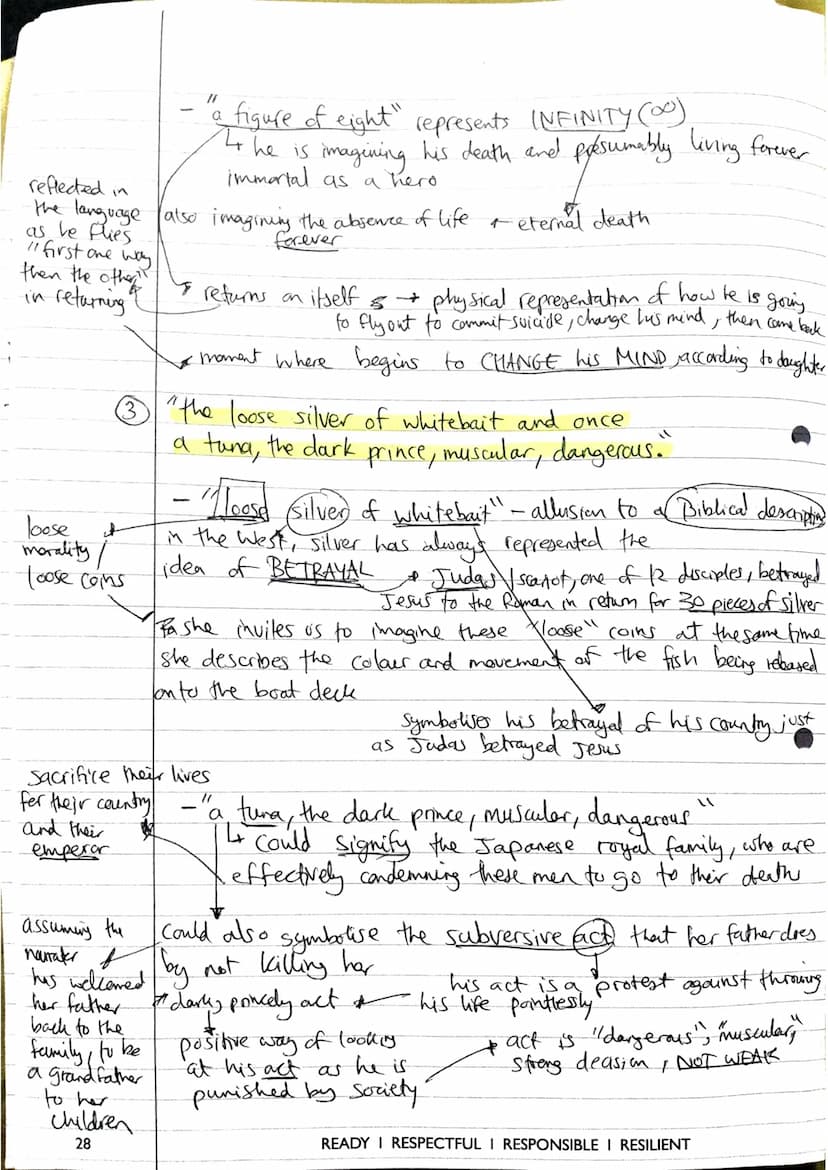 - "a figure of eight" represents INFINITY (∞)
↳ he is imagining his death and presumably living forever
immortal as a hero
also imagining the absence of life ← eternal death
forever
reflected in
the language
as he flies
"first one way
then the other"
in returning
returns on itself → physical representation of how he is going
to fly out to commit suicide, change his mind, then come back
moment where begins to CHANGE his MIND, according to daughter
③ "the loose silver of whitebait and once
a tuna, the dark prince, muscular, dangerous."
- "loose silver of whitebait" - allusion to a Biblical description
in the West, silver has always represented the
idea of BETRAYAL → Judas Iscariot, one of 12 disciples, betrayed
Jesus to the Roman in return for 30 pieces of silver
loose
morality /
loose coins
she invites us to imagine these "loose" coins at the same time
she describes the colour and movement of the fish being released
onto the boat deck
symbolises his betrayal of his country just
as Judas betrayed Jesus
sacrifice their lives
for their country
and their
emperor
- "a tuna, the dark prince, muscular, dangerous"
↳ could signify the Japanese royal family, who are
effectively condemning these men to go to their death
could also symbolise the subversive act that her father does
by not killing her
his act is a protest against throwing
his life pointlessly
dark, princely act
positive way of looking
at his act as he is
punished by society
act is "dangerous", "muscular,"
strong decision, NOT WEAK
assuming the
narrater
has welcomed
her father
back to the
family, to be
a grandfather
to her
children
28
READY | RESPECTFUL | RESPONSIBLE | RESILIENT